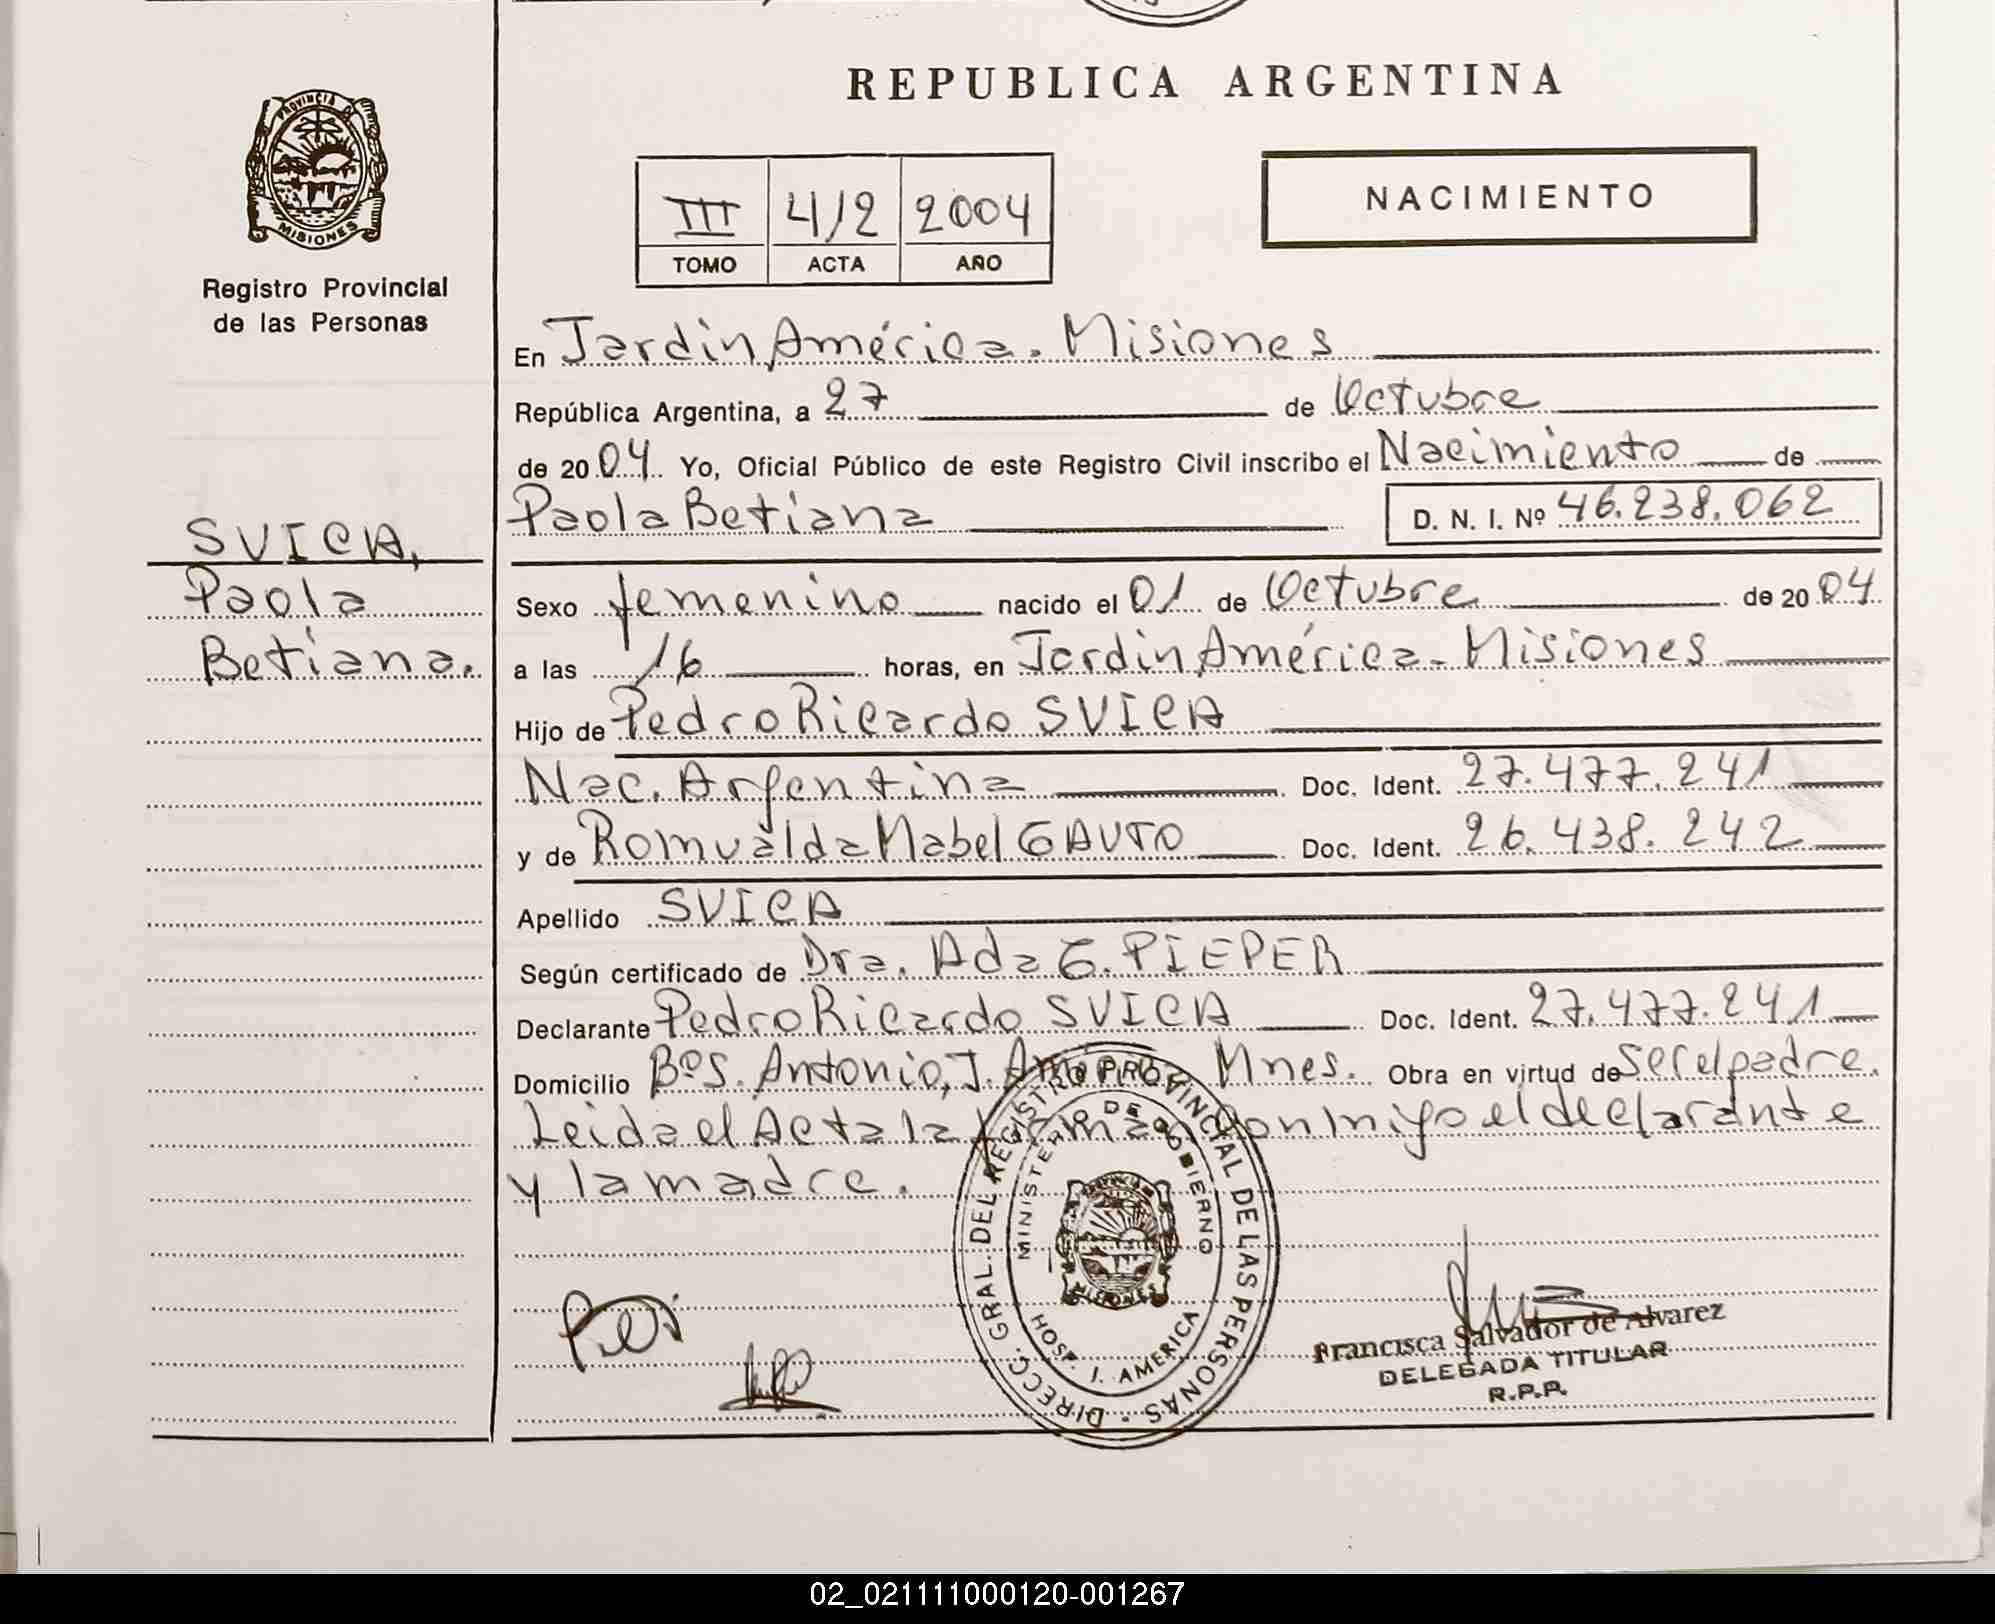 REPUBLICA ARGENTINA
PROVINCIA DE
MISIONES
Registro Provincial
de las Personas
III 4/2 2004
TOMO ACTA AÑO
NACIMIENTO
En Jardin América. Misiones
República Argentina, a 27 de Octubre
de 20 04 Yo, Oficial Público de este Registro Civil inscribo el Nacimiento de
Paola Betiana D. N. I. Nº 46.238.062
SVICA,
Paola
Betiana.
Sexo femenino nacido el 01 de Octubre de 20 04
a las 16 horas, en Jardin América. Misiones
Hijo de Pedro Ricardo SVICA
Nac. Argentina Doc. Ident. 27.477.241
y de Romualda Mabel GAUTO Doc. Ident. 26.438.242
Apellido SVICA
Según certificado de Dra. Ada G. PIEPER
Declarante Pedro Ricardo SVICA Doc. Ident. 27.477.241
Domicilio BºS. Antonio, J. Mnes. Obra en virtud de ser el padre.
Leida el Acta la firman conmigo el declarante
y la madre.
DIRECC. GRAL. DEL REGISTRO PROVINCIAL DE LAS PERSONAS
MINISTERIO DE GOBIERNO
MISIONES
HOSP. J. AMERICA
Francisca Salvador de Alvarez
DELEGADA TITULAR
R.P.P.
02_021111000120-001267